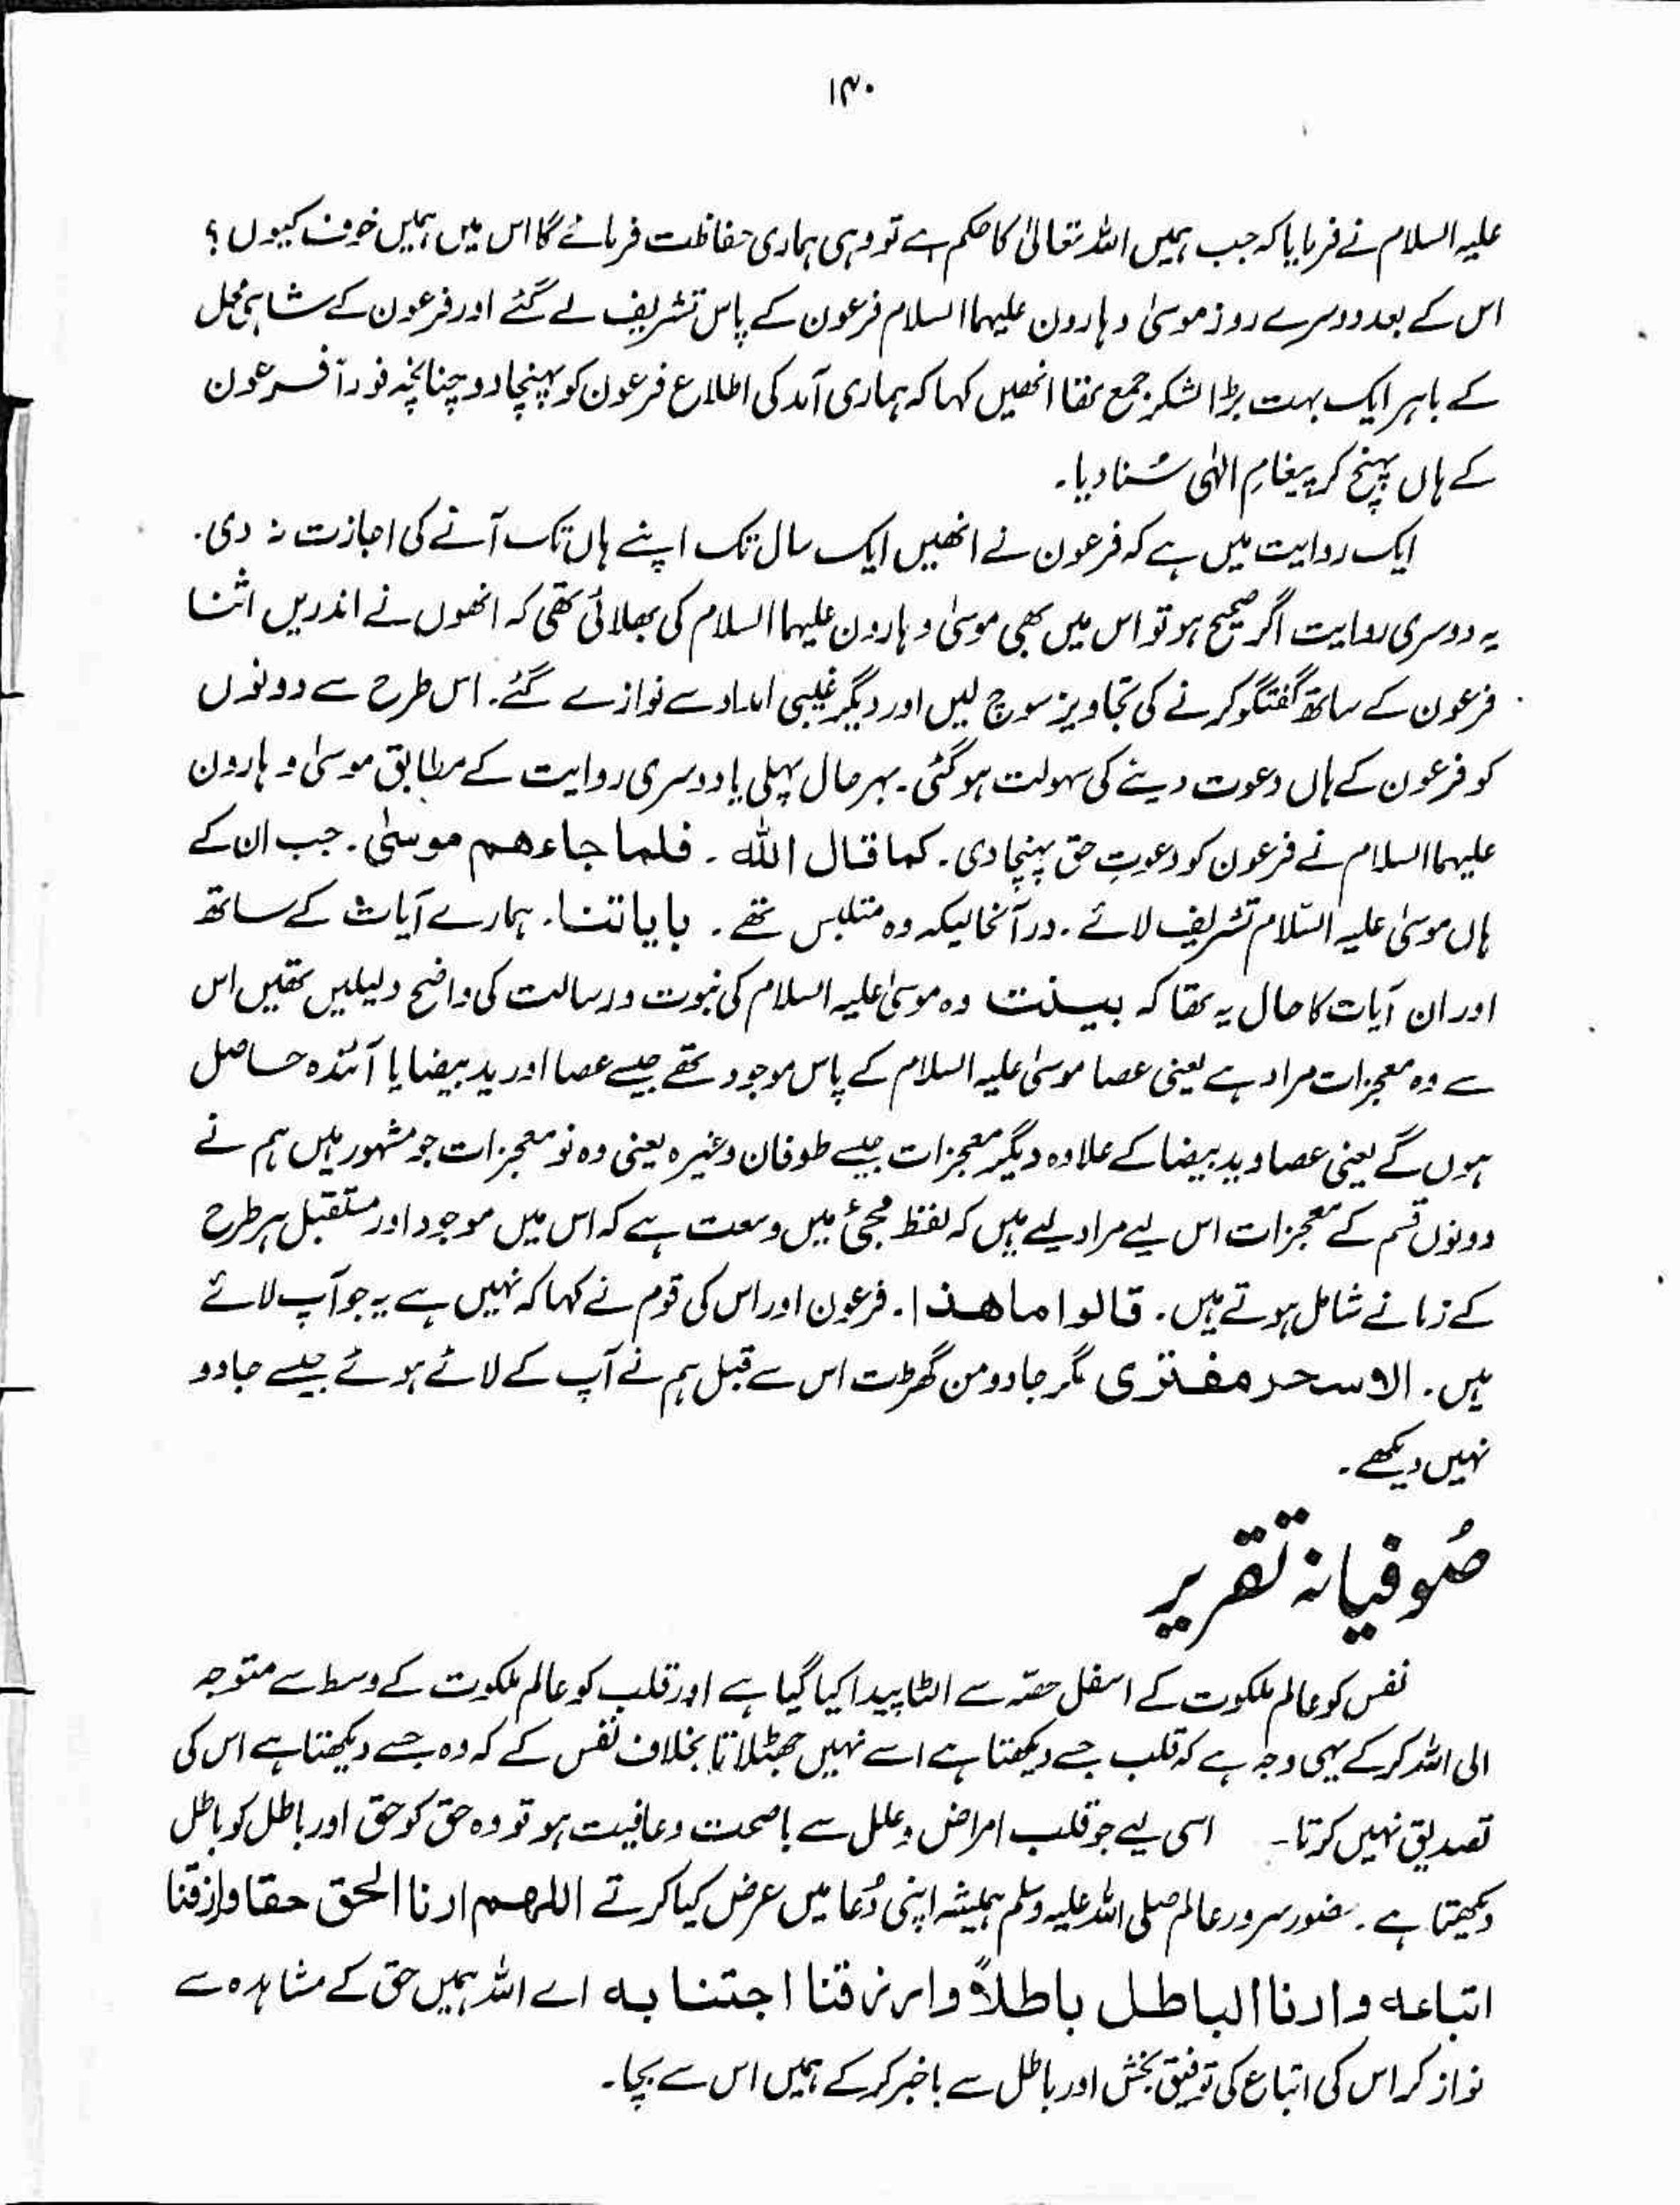 ۱۴۰
علیہ السلام نے فرمایا کہ جب ہمیں اللہ تعالیٰ کا حکم ہے تو وہی ہماری حفاظت فرمائے گا اس میں ہمیں خوف کیوں؟
اس کے بعد دوسرے روز موسیٰ و ہارون علیہما السلام فرعون کے پاس تشریف لے گئے اور فرعون کے شاہی محل
کے باہر ایک بہت بڑا لشکر جمع تھا انھیں کہا کہ ہماری آمد کی اطلاع فرعون کو پہنچا دو چنانچہ فوراً فرعون
کے ہاں پہنچ کر پیغامِ الٰہی سُنا دیا۔
ایک روایت میں ہے کہ فرعون نے انھیں ایک سال تک اپنے ہاں تک آنے کی اجازت نہ دی۔
یہ دوسری روایت اگر صحیح ہو تو اس میں بھی موسیٰ و ہارون علیہما السلام کی بھلائی تھی کہ انھوں نے اندریں اثنا
فرعون کے ساتھ گفتگو کرنے کی تجاویز سوچ لیں اور دیگر غیبی امداد سے نوازے گئے۔ اس طرح سے دونوں
کو فرعون کے ہاں دعوت دینے کی سہولت ہو گئی۔ بہر حال پہلی یا دوسری روایت کے مطابق موسیٰ و ہارون
علیہما السلام نے فرعون کو دعوتِ حق پہنچا دی۔ کما قال اللہ ۔ فلما جاءھم موسیٰ۔ جب ان کے
ہاں موسیٰ علیہ السّلام تشریف لائے۔ درآنحالیکہ وہ متلبس تھے۔ بایاتنا۔ ہمارے آیات کے ساتھ
اور ان آیات کا حال یہ تھا کہ بینت وہ موسیٰ علیہ السلام کی نبوت و رسالت کی واضح دلیلیں تھیں اس
سے وہ معجزات مراد ہے یعنی عصا موسیٰ علیہ السلام کے پاس موجود تھے جیسے عصا اور ید بیضا یا آئندہ حاصل
ہوں گے یعنی عصا و ید بیضا کے علاوہ دیگر معجزات جیسے طوفان وغیرہ یعنی وہ نو معجزات جو مشہور ہیں ہم نے
دونوں قسم کے معجزات اس لیے مراد لیے ہیں کہ لفظ مجئ میں وسعت ہے کہ اس میں موجود اور مستقبل ہر طرح
کے زمانے شامل ہوتے ہیں۔ قالوا ما ھذا۔ فرعون اور اس کی قوم نے کہا کہ نہیں ہے یہ جو آپ لائے
ہیں۔ الا سحر مفتری مگر جادو من گھڑت اس سے قبل ہم نے آپ کے لائے ہوئے جیسے جادو
نہیں دیکھے۔
صُوفیانہ تقریر
نفس کو عالم ملکوت کے اسفل حصّہ سے الٹا پیدا کیا گیا ہے اور قلب کو عالم ملکوت کے وسط سے متوجہ
الی اللہ کر کے یہی وجہ ہے کہ قلب جسے دیکھتا ہے اسے نہیں جھٹلاتا بخلاف نفس کے کہ وہ جسے دیکھتا ہے اس کی
تصدیق نہیں کرتا۔ اسی لیے جو قلب امراض و علل سے با صحت و عافیت ہو تو وہ حق کو حق اور باطل کو باطل
دیکھتا ہے۔ حضور سرور عالم صلی اللہ علیہ وسلم ہمیشہ اپنی دُعا میں عرض کیا کرتے اللھم ارنا الحق حقا وارزقنا
اتباعہ وارنا الباطل باطلاً وارزقنا اجتنابہ اے اللہ ہمیں حق کے مشاہدہ سے
نواز کر اس کی اتباع کی توفیق بخش اور باطل سے باخبر کر کے ہمیں اس سے بچا۔